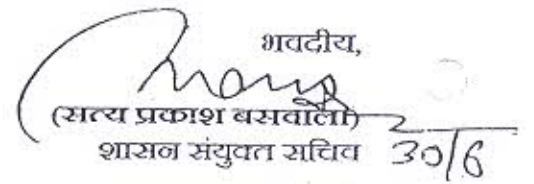 भवदीय,
(सत्य प्रकाश बसवाला)
शासन संयुक्त सचिव 30/6